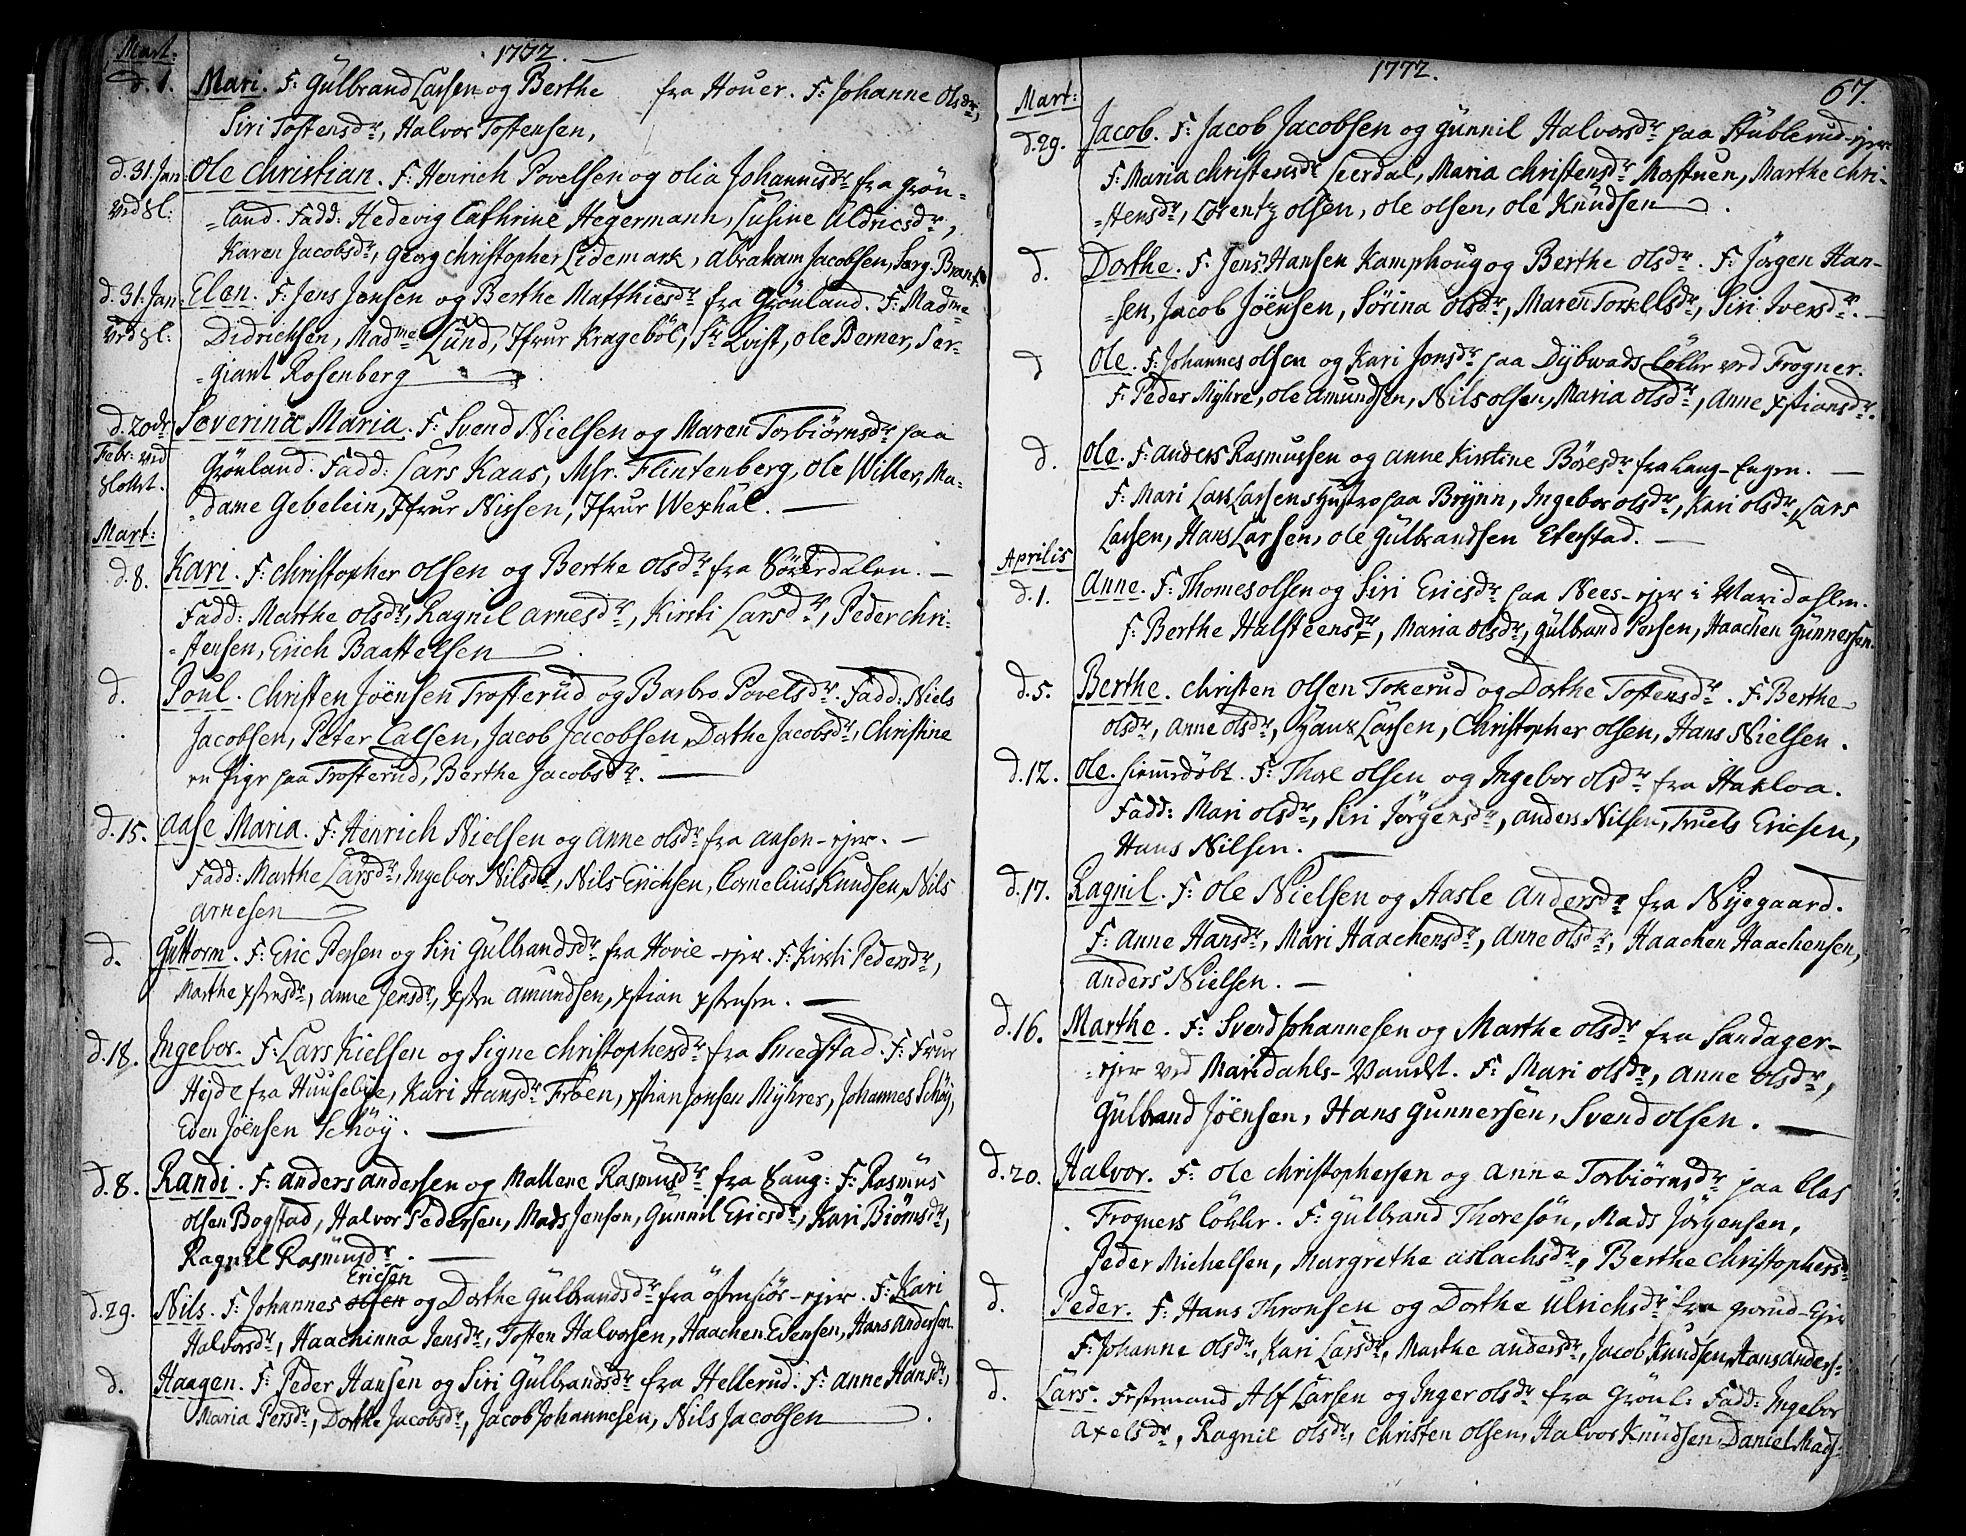 Mart: 1772.
d. 1. Mari. F: Gülbrand Larsen og Berthe fra Houer. F: Johanne Olsdr,
Siri Tostensdr, Halvor Tostensen,
d. 31. Jan: Ole Christian. F: Henrich Povelsen og Olia Johannisdr fra Grön-
ved Sl: =land. Fadd: Hedevig Cathrine Hegermann, Lusine Uldricsdr,
Karen Jacobsdr, Georg Christopher Lidemark, Abraham Jacobsen, Serg. Brant
d. 31. Jan: Elen. F: Jens Jensen og Berthe Matthiesdr fra Grönland. F: Madme
ved Sl: Didrichsen, Madme Lund, Jfrur Krageböl, Sr Qvist, Ole Berner, Ser-
=giant Rosenberg
d. 20de Severina Maria. F: Svend Nielsen og Maren Torbiörnsdr paa
Febr: ved Grönland. Fadd: Lars Kaas, Msr. Flintenberg, Ole Willer, Ma-
Slottet. =dame Gebelein, Jfrur Nissen, Jfrur Wexhal.
Mart:
d. 8. Kari. F: Christopher Olsen og Berthe Olsdr fra Sörerdalen.
Fadd: Marthe Olsdr, Ragnil Arnesdr, Kirsti Larsdr, Peder Chri-
=stensen, Erich Baattelsen
d. Poul. Christen Jöensen Trosterud og Barbro Povelsdr. Fadd: Niels
Jacobsen, Peter Calsen, Jacob Jacobsen, Dorthe Jacobsdr, Christine
en Pige paa Trosterud, Berthe Jacobsdr.
d. 15. Aase Maria. F: Henrich Nielsen og Anne Olsdr fra Aasen-ejer.
Fadd: Marthe Larsdr, Ingebor Nilsdr, Nils Erichsen, Cornelius Knudsen, Nils
Arnesen
d. Guttorm. F: Eric Persen og Siri Gülbrandsdr fra Hovie-ejer. F: Kirsti Pedersdr,
Marthe Xstensdr, Anne Jensdr, Xsten Amundsen, Xstian Xstensen.
d. 18. Ingebor. F: Lars Kielsen og Signe Christophersdr fra Smedstad. F: Frur
Hejde fra Huusebye, Kari Hansdr Fröen, Xstian Jonsen Myhrer, Johannes Schöy,
Eden Jöensen Schöy.
d. 8. Randi. F: Anders Andersen og Mallene Rasmusdr fra Baug: F: Rasmus
Olsen Bogstad, Halvor Pedersen, Mads Jenson, Gunnil Ericsdr, Kari Biörnsdr,
Ragnil Rasmusdr.
Ericsen
d. 29. Nils. F: Johannes Olsen og Dorthe Gülbrandsdr fra Östensiör-ejer. F: Kari
Halvorsdr, Haachinna Jensdr, Tosten Halvorsen, Haachen Evensen, Hans Andersen.
d. Haagen. F: Peder Hansen og Siri Gülbrandsdr fra Hellerud. F: Anne Hansdr,
Maria Persdr, Dorthe Jacobsdr, Jacob Johannesen, Nils Jacobsen
1772. 67.
Mart:
d. 29. Jacob. F: Jacob Jacobsen og Gunnil Halvorsdr paa Stubberud-ejer
F: Maria Christensdr Leerdal, Maria Christensdr Mostuen, Marthe Chri-
=stensdr, Lorentz Olsen, Ole Olsen, Ole Knudsen.
d. Dorthe. F: Jens Hansen Kamphoug og Berthe Olsdr. F: Jörgen Han-
=sen, Jacob Jöensen, Sörina Olsdr, Maren Torkelsdr, Siri Iversdr.
d Ole. F: Johannes Olsen og Kari Jonsdr paa Dybwads Lökke ved Frogner.
F: Peder Myhre, Ole Amundsen, Nils Olsen, Maria Olsdr, Anne Xstiansdr.
d. Ole. F: Anders Rasmussen og Anne Kirstine Böresdr fra Lang-Engen.
F: Mari Lars Larsens Hustro paa Brynn, Ingebor Olsdr, Kari Olsdr, Lars
Larsen, Hans Larsen, Ole Gülbrandsen Eterstad.
Aprilis
d. 1. Anne. F: Thomes Olsen og Siri Ericsdr paa Nees-ejer i Maridahlen.
F: Berthe Halsteensdr, Maria Olsdr, Gülbrand Persen, Haachen Gunnersen.
d. 5. Berthe. Christen Olsen Tokerud og Dorthe Tostensdr. F: Berthe
Olsdr, Anne Olsdr, Hans Larsen, Christopher Olsen, Hans Nielsen.
d. 12. Ole. hiemmedöbt. F: Thore Olsen og Ingebor Olsdr fra Hakloa.
Fadd: Mari Olsdr, Siri Jörgensdr, Anders Nilsen, Truels Ericsen,
Hans Nilsen.
d. 17. Ragnil. F: Ole Nielsen og Aasle Andersdr fra Nyegaard.
F: Anne Hansdr, Mari Haachensdr, Anne Olsdr, Haachen Haachensen,
Anders Nielsen.
d. 16. Marthe. F: Svend Johannesen og Marthe Olsdr fra Sandager-
=ejer ved Maridahls-Vandet. F: Mari Olsdr, Anne Olsdr,
Gülbrand Jöensen, Hans Gunnersen, Svend Olsen.
d. 20. Halvor. F: Ole Christophersen og Anne Torbiörnsdr paa Clas
Frogners Lökke. F: Gülbrand Thoresön, Mads Jörgensen,
Peder Michelsen, Margrethe Aslachsdr, Berthe Christophersdr
d. Peder. F: Hans Thronsen og Dorthe Ulrichsdr fra Grorud-Ejer
F: Johanne Olsdr, Kari Larsdr, Marthe Andersdr, Jacob Knudsen, Hans Anders:
d. Lars. Festemand Alf Larsen og Inger Olsdr fra Grönl: Fadd: Ingebor
Axelsdr, Ragnil Olsdr, Christen Olsen, Halvor Knudsen, Daniel Mads: